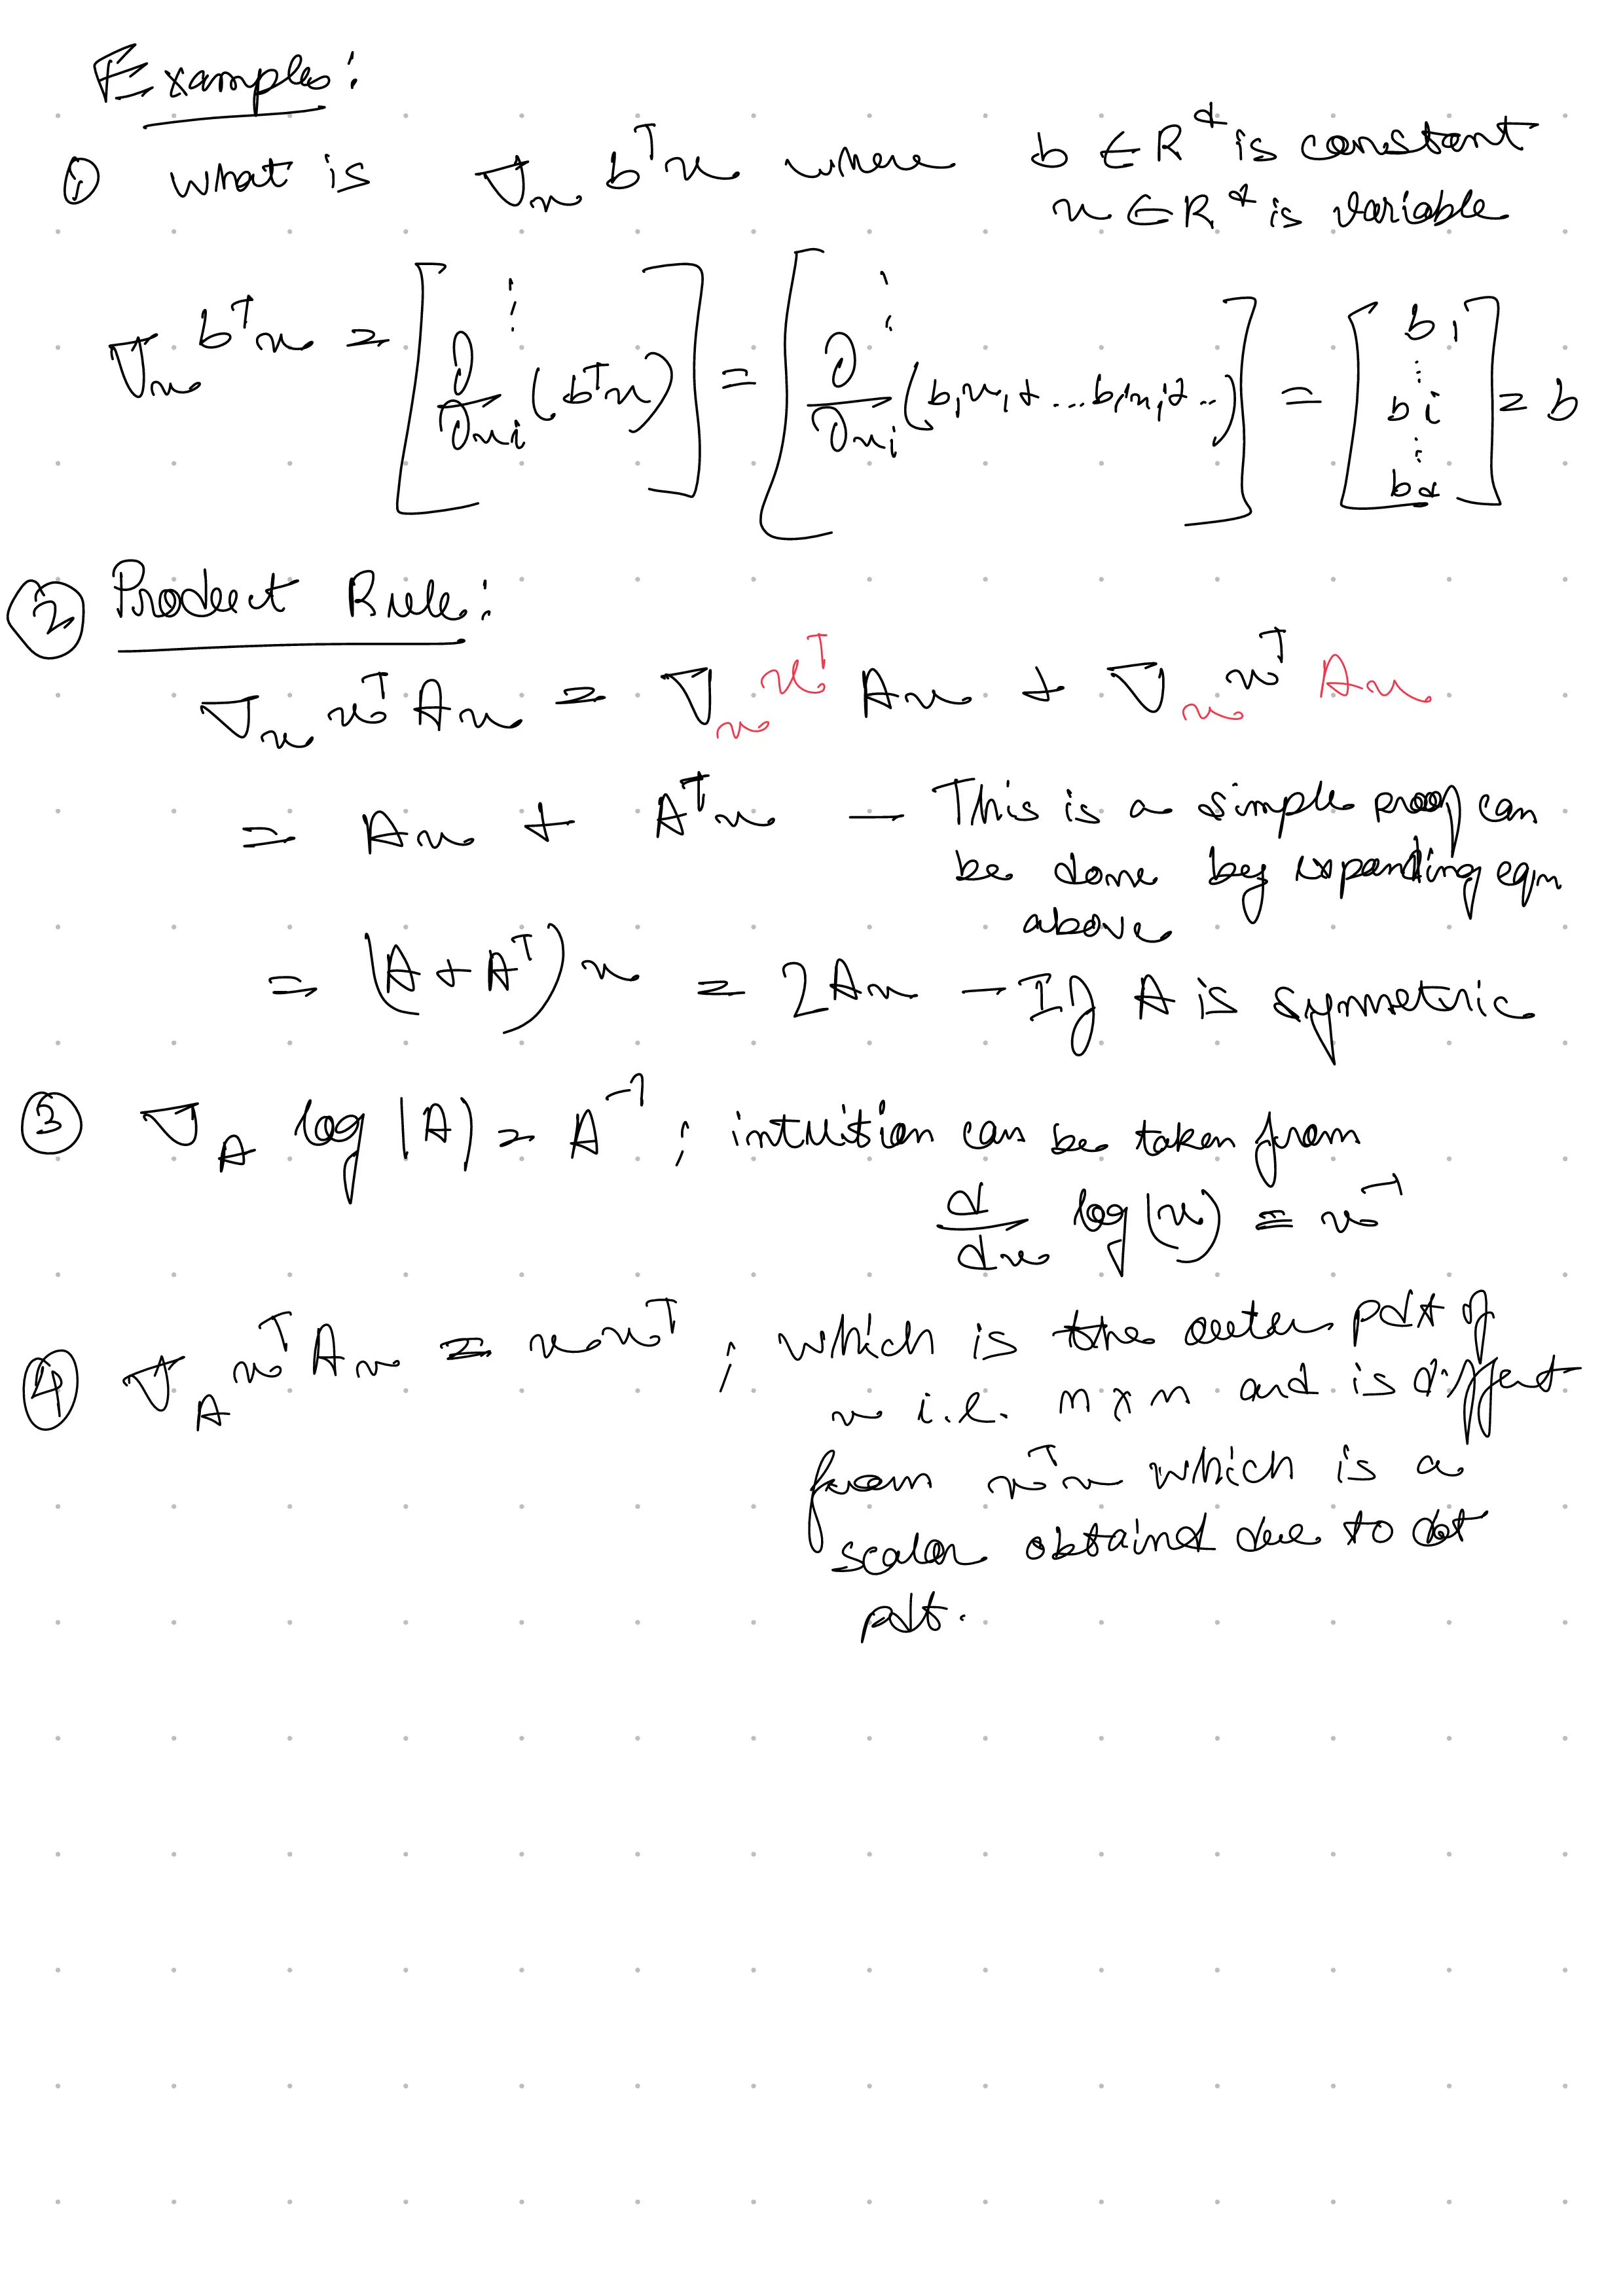 Examples:
① What is ∇ₓ bᵀx where b ∈ Rᵈ is constant
x ∈ Rᵈ is variable
∇ₓ bᵀx = [ ⋮ ∂/∂xᵢ (bᵀx) ] = [ ⋮ ∂/∂xᵢ (b₁x₁+ ... bᵢxᵢ+ ..) ] = [ b₁ ⋮ bᵢ ⋮ b_d ] = b
② Product Rule:
∇ₓ xᵀAx = ∇ₓ xᵀ Ax + ∇ₓ xᵀ Ax
= Ax + Aᵀx — This is a simple proof can
be done by expanding eqn
above
= (A + Aᵀ) x = 2Ax — If A is symmetric
③ ∇_A log |A| = A⁻¹ ; intuition can be taken from
d/dx log(x) = x⁻¹
④ ∇_A xᵀAx = xxᵀ ; which is the outer pdt of
x i.e. n x n and is diffent
from xᵀx which is a
scalar obtaind due to dot
pdt.